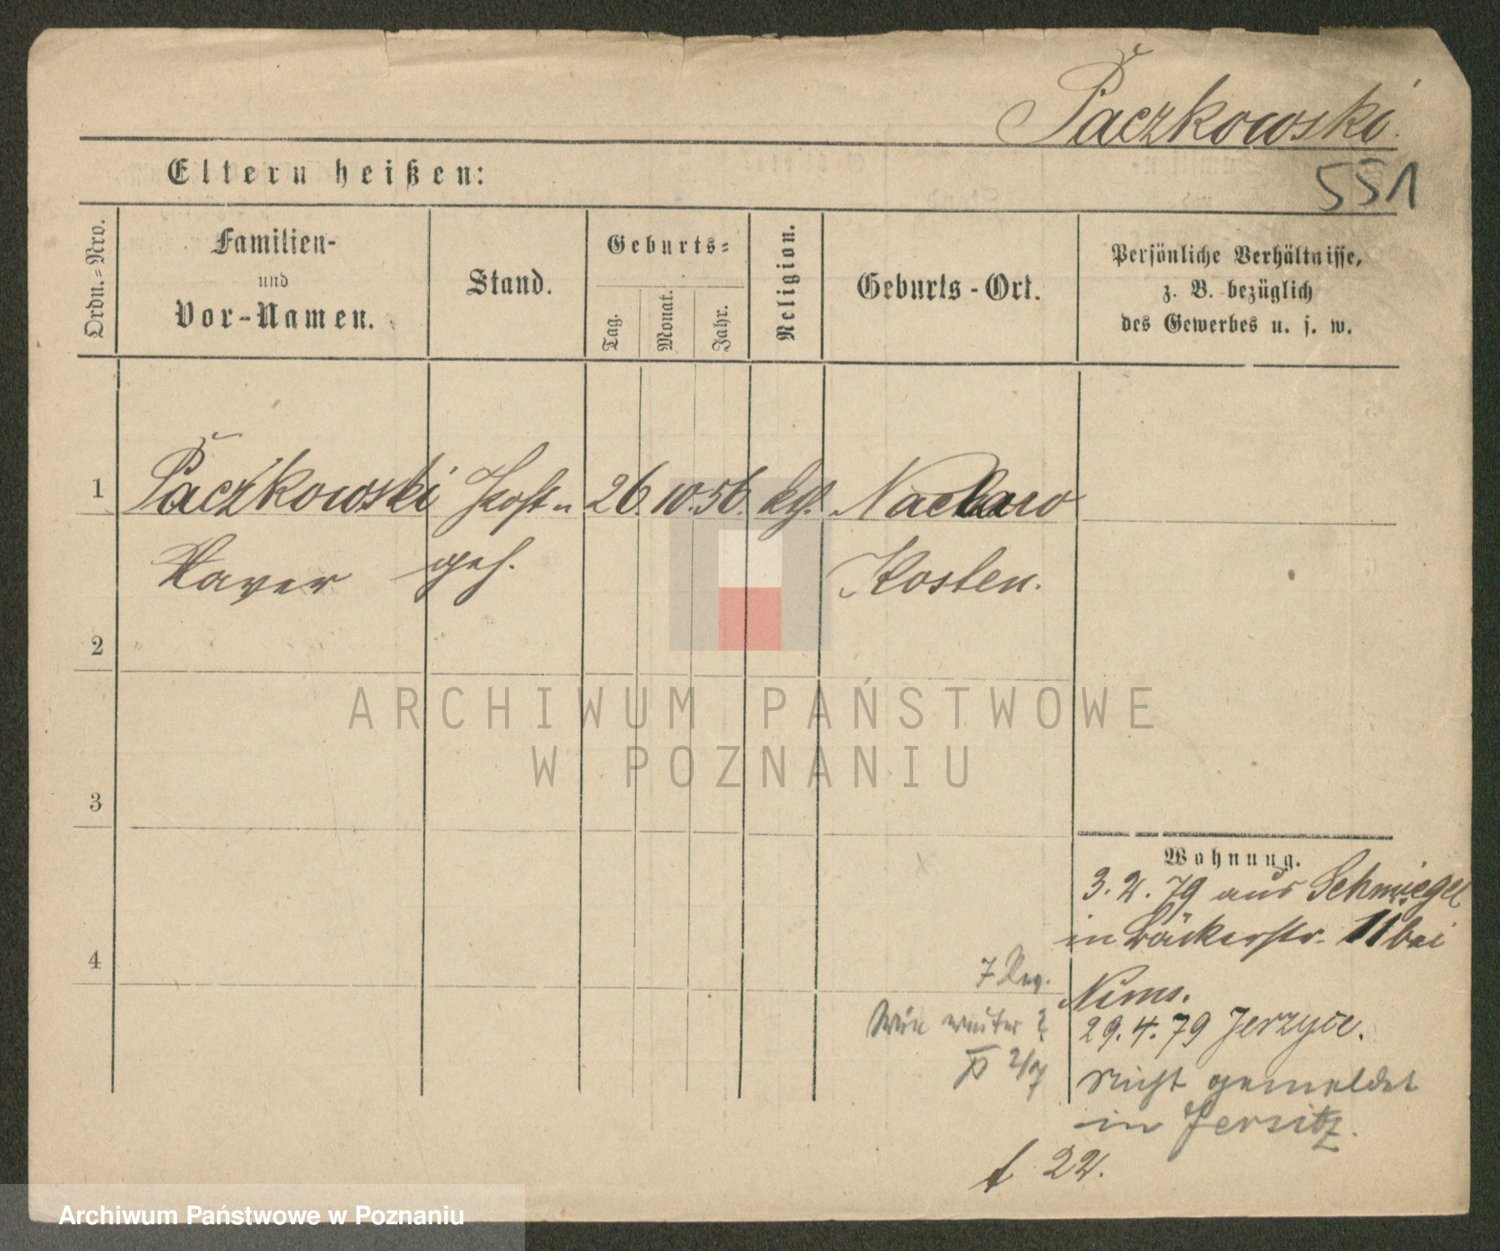 Paczkowski.
551
Eltern heißen:
Ordn.=Nro.
Familien-
und
Vor-Namen.
Stand.
Geburts=
Tag.
Monat.
Jahr.
Religion.
Geburts-Ort.
Persönliche Verhältnisse,
z. B. bezüglich
des Gewerbes u. s. w.
1 Paczkowski 26. 10. 56. kth. Naclaw
Xaver geh. Kosten.
2
3
4
ARCHIWUM PAŃSTWOWE
W POZNANIU
Wohnung.
3. 2. 79 aus Schmiegel
in Bäckerstr. 11 bei
Nims.
29. 4. 79 Jerzyce.
nicht gemeldet
in Jersitz.
22.
Archiwum Państwowe w Poznaniu